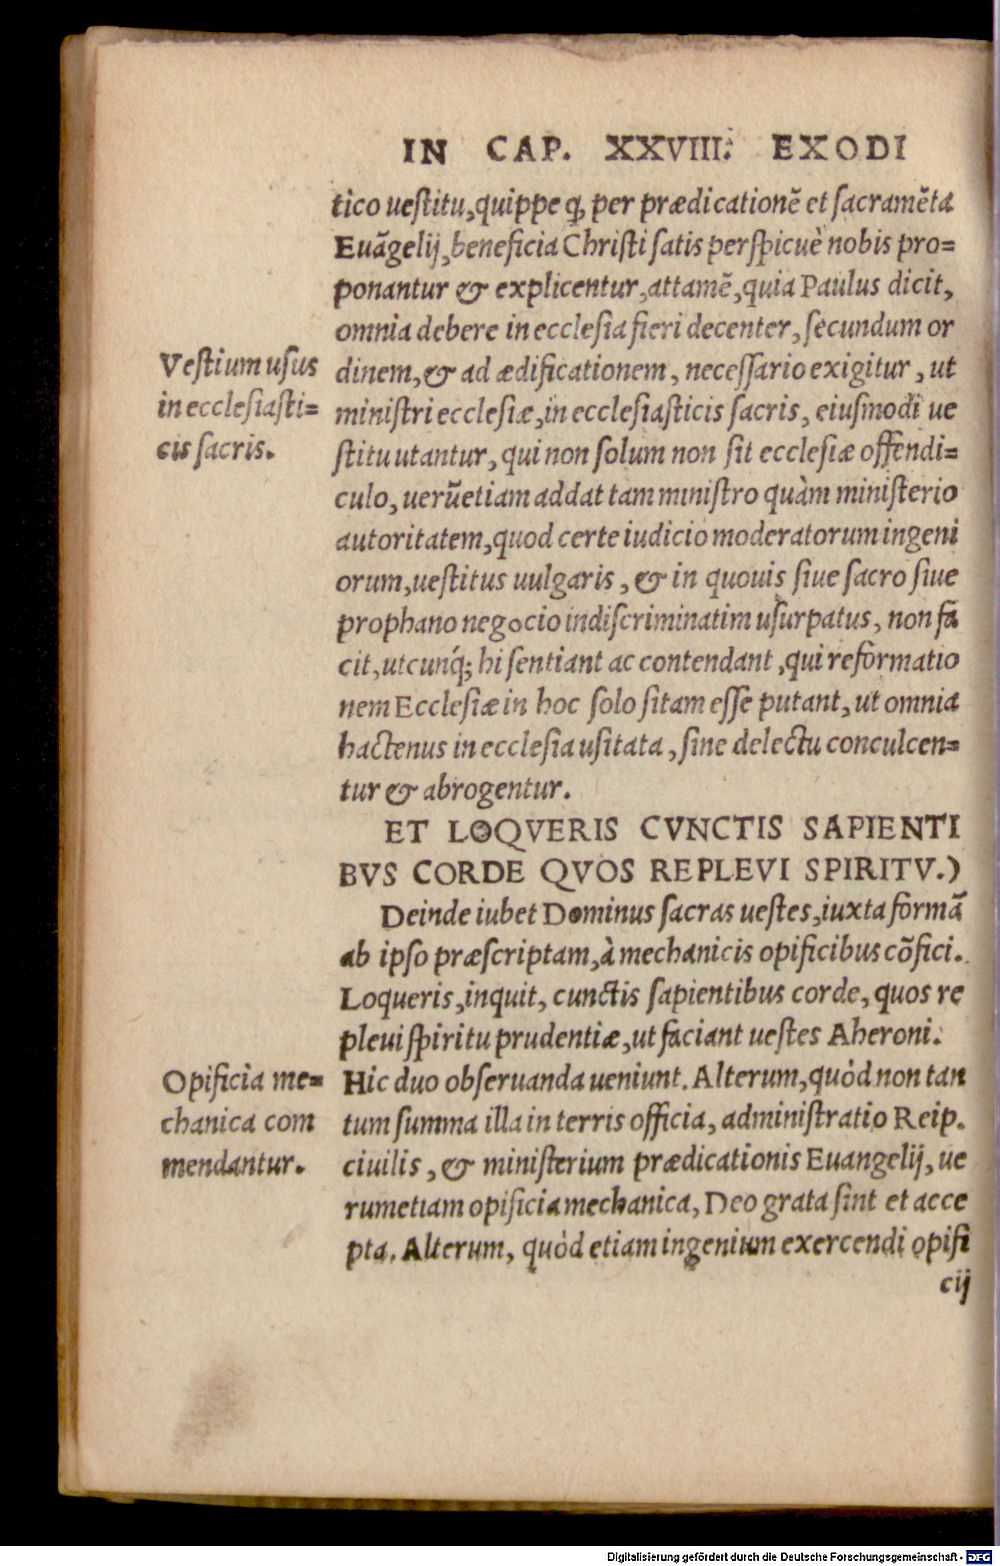 IN CAP. XXVIII. EXODI
tico uestitu, quippe ꝙ per prædicationẽ et sacramẽta
Euãgelij, beneficia Christi satis perspicuè nobis pro=
ponantur & explicentur, attamẽ, quia Paulus dicit,
omnia debere in ecclesia fieri decenter, secundum or
dinem, & ad ædificationem, necessario exigitur, ut
ministri ecclesiæ, in ecclesiasticis sacris, eiusmodi ue
stitu utantur, qui non solum non sit ecclesiæ offendi=
culo, uerũetiam addat tam ministro quàm ministerio
autoritatem, quod certe iudicio moderatorum ingeni
orum, uestitus uulgaris, & in quouis siue sacro siue
prophano negocio indiscriminatim usurpatus, non fa
cit, utcunq́; hi sentiant ac contendant, qui reformatio
nem Ecclesiæ in hoc solo sitam esse putant, ut omnia
hactenus in ecclesia usitata, sine delectu conculcen=
tur & abrogentur.
Vestium usus
in ecclesiasti=
cis sacris.
ET LOQVERIS CVNCTIS SAPIENTI
BVS CORDE QVOS REPLEVI SPIRITV.)
Deinde iubet Dominus sacras uestes, iuxta formã
ab ipso præscriptam, à mechanicis opificibus cõfici.
Loqueris, inquit, cunctis sapientibus corde, quos re
pleui spiritu prudentiæ, ut faciant uestes Aheroni.
Hic duo obseruanda ueniunt. Alterum, quòd non tan
tum summa illa in terris officia, administratio Reip.
ciuilis, & ministerium prædicationis Euangelij, ue
rumetiam opificia mechanica, Deo grata sint et acce
pta. Alterum, quòd etiam ingenium exercendi opifi
Opificia me=
chanica com
mendantur.
cij
Digitalisierung gefördert durch die Deutsche Forschungsgemeinschaft - DFG